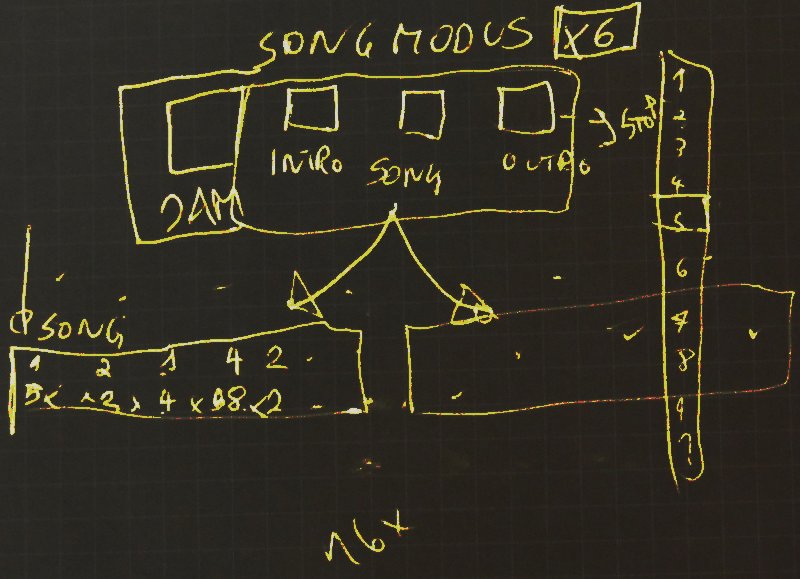 SONG MODUS x6
INTRO
SONG
OUTRO
STOP
JAM
1
2
3
4
5
6
7
8
9
SONG
1 2 1 4 2
16x